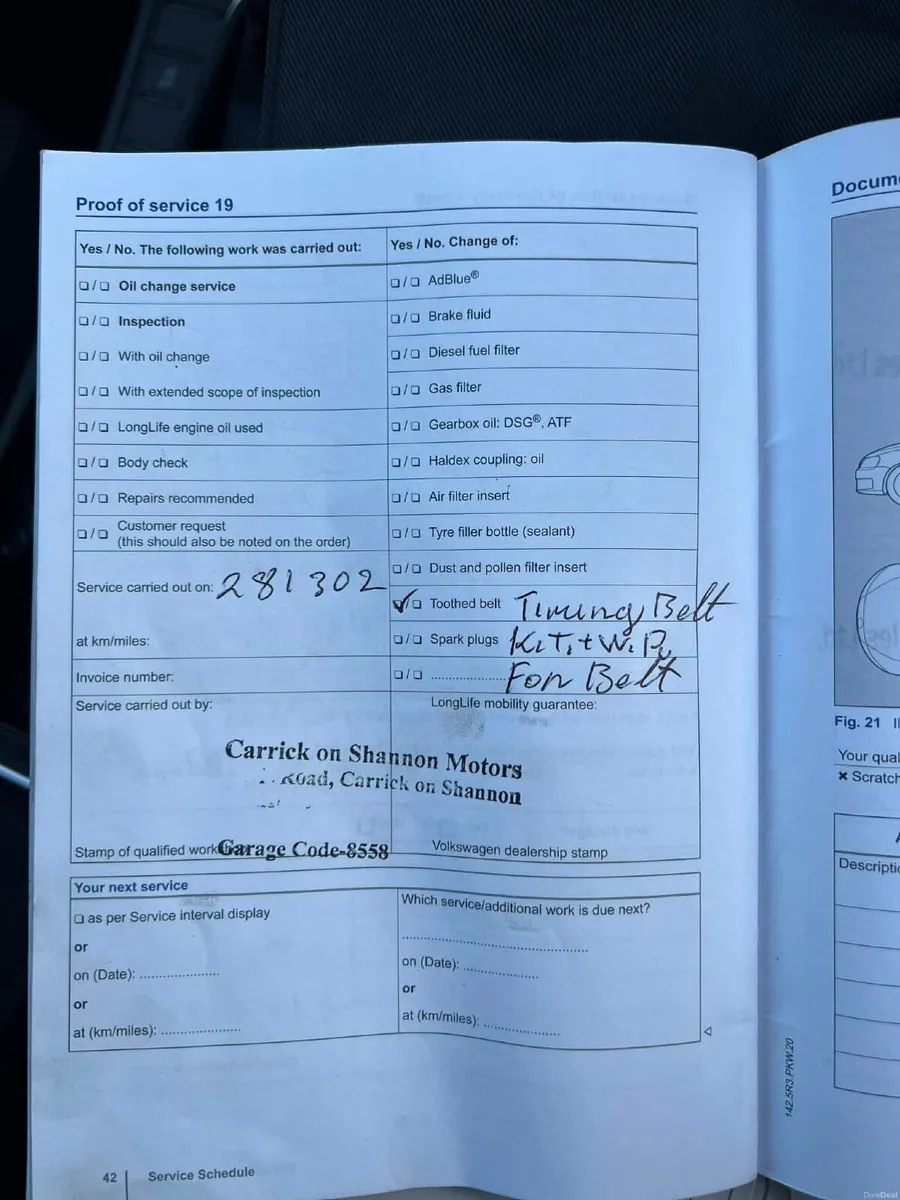 Proof of service 19
Yes / No. The following work was carried out:
❏ / ❏ Oil change service
❏ / ❏ Inspection
❏ / ❏ With oil change
❏ / ❏ With extended scope of inspection
❏ / ❏ LongLife engine oil used
❏ / ❏ Body check
❏ / ❏ Repairs recommended
❏ / ❏ Customer request
(this should also be noted on the order)
Service carried out on: 281302
at km/miles:
Invoice number:
Service carried out by:
Yes / No. Change of:
❏ / ❏ AdBlue®
❏ / ❏ Brake fluid
❏ / ❏ Diesel fuel filter
❏ / ❏ Gas filter
❏ / ❏ Gearbox oil: DSG®, ATF
❏ / ❏ Haldex coupling: oil
❏ / ❏ Air filter insert
❏ / ❏ Tyre filler bottle (sealant)
❏ / ❏ Dust and pollen filter insert
✓ / ❏ Toothed belt Timing Belt
❏ / ❏ Spark plugs KiT, + W.P,
❏ / ❏ .................... Fon Belt
LongLife mobility guarantee:
Carrick on Shannon Motors
Road, Carrick on Shannon
Stamp of qualified Garage Code-8558
Volkswagen dealership stamp
Your next service
❏ as per Service interval display
or
on (Date): ....................
or
at (km/miles): ....................
Which service/additional work is due next?
....................
on (Date): ....................
or
at (km/miles): ....................
42 | Service Schedule
142.5R3.PKW.20
Docum
Fig. 21
Your qual
× Scratch
Descriptio
DoneDeal